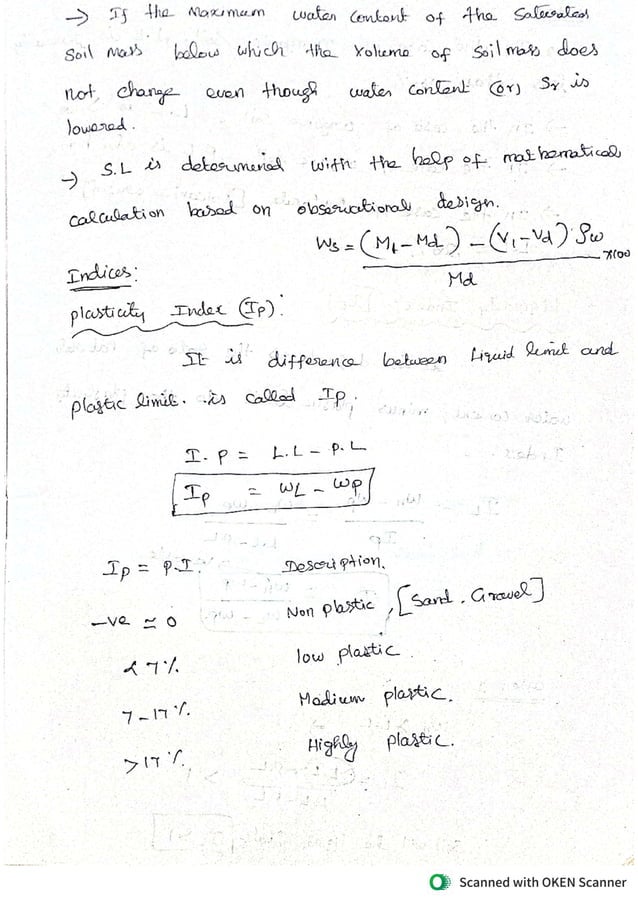 → If the maximum water content of the saturated
soil mass below which the volume of soil mass does
not, change even though water content (or) Sr is
lowered.
→ S.L is determined with the help of mathematical
calculation based on observational design.
Ws = (M1 - Md) - (V1 - Vd) ρw / Md × 100
Indices:
plasticity Index (Ip):
It is difference between Liquid limit and
plastic limit. is called Ip.
I.P = L.L - P.L
Ip = WL - Wp
Ip = P.I. Description.
-ve ≃ 0 Non plastic, [Sand, Gravel]
< 7% low plastic
7 - 17% Medium plastic.
> 17% Highly plastic.
Scanned with OKEN Scanner